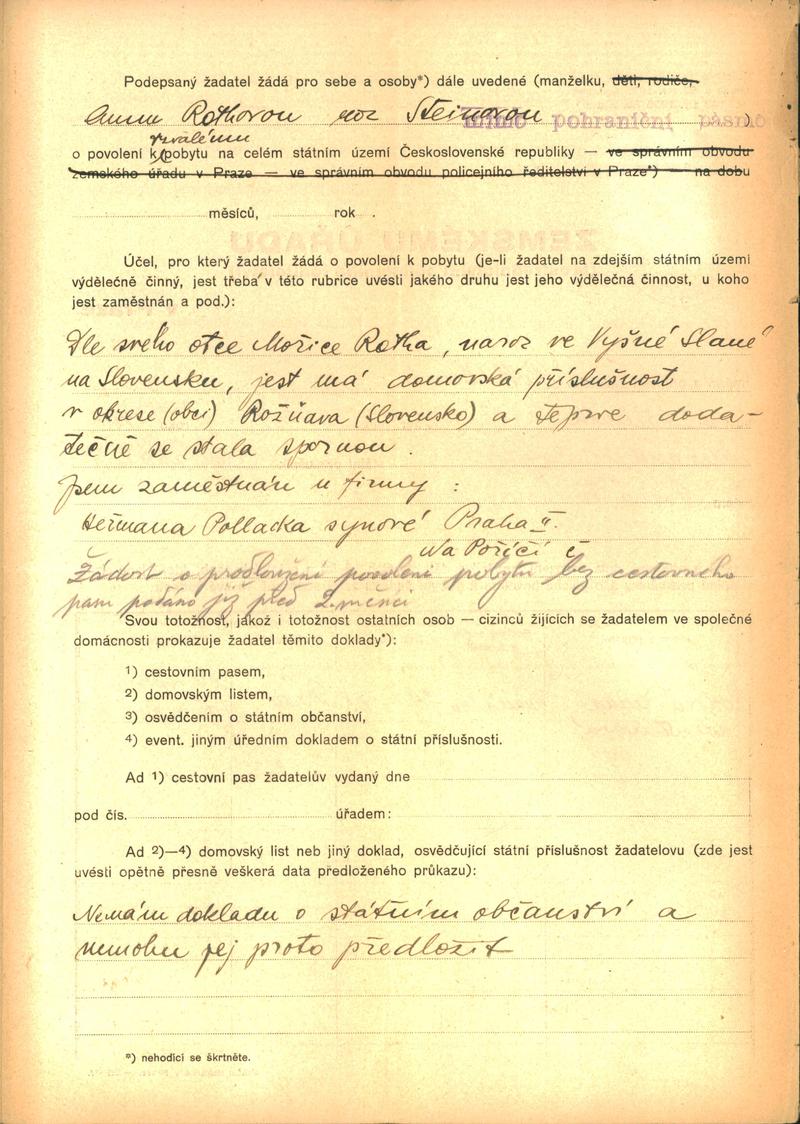 Podepsaný žadatel žádá pro sebe a osoby*) dále uvedené (manželku, děti, rodiče,
Annu Rothovou roz Steinovou mimo pohraniční pásmo )
trvalému
o povolení k pobytu na celém státním území Československé republiky — ve správním obvodu
zemského úřadu v Praze — ve správním obvodu policejního ředitelství v Praze*) — na dobu
měsíců, rok .
Účel, pro který žadatel žádá o povolení k pobytu (je-li žadatel na zdejším státním území
výdělečně činný, jest třeba v této rubrice uvésti jakého druhu jest jeho výdělečná činnost, u koho
jest zaměstnán a pod.):
Dle svého otce Mořice Rotha, naroz ve Vyšné Slané
na Slovensku, jest má domovská příslušnost
v okrese (obci) Rožňava (Slovensko) a teprve doda-
tečně se stala spornou.
Jsem zaměstnán u firmy :
Heřmana Pollacka synové Praha II.
Na Poříčí č
Žádost o prodloužení povolení pobytu bez cestovného
pasu podáno již před 2. měsíci
Svou totožnost, jakož i totožnost ostatních osob — cizinců žijících se žadatelem ve společné
domácnosti prokazuje žadatel těmito doklady*):
1) cestovním pasem,
2) domovským listem,
3) osvědčením o státním občanství,
4) event. jiným úředním dokladem o státní příslušnosti.
Ad 1) cestovní pas žadatelův vydaný dne
pod čís. úřadem:
Ad 2)—4) domovský list neb jiný doklad, osvědčující státní příslušnost žadatelovu (zde jest
uvésti opětně přesně veškerá data předloženého průkazu):
Nemám dokladu o státním občanství a
nemohu jej proto předložit
*) nehodící se škrtněte.